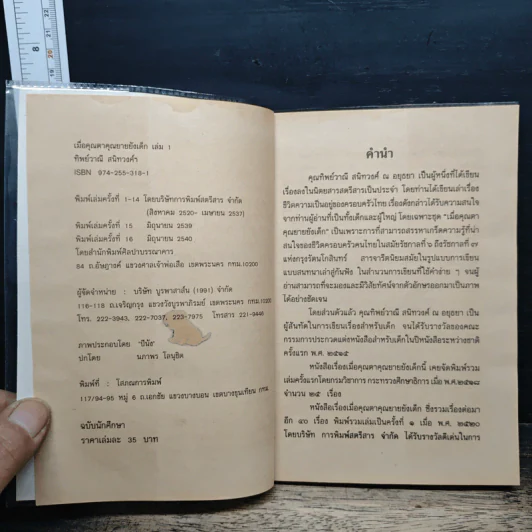 เมื่อคุณตาคุณยายยังเด็ก เล่ม 1
ทิพย์วาณี สนิทวงศ์ฯ
ISBN 974-255-318-1
พิมพ์เล่มครั้งที่ 1-14 โดยบริษัทการพิมพ์สตรีสาร จำกัด
(สิงหาคม 2520- เมษายน 2537)
พิมพ์เล่มครั้งที่ 15 มิถุนายน 2539
พิมพ์เล่มครั้งที่ 16 มิถุนายน 2540
โดยสำนักพิมพ์ศิลปาบรรณาคาร
84 ถ.อัษฎางค์ แขวงศาลเจ้าพ่อเสือ เขตพระนคร กทม.10200
ผู้จัดจำหน่าย : บริษัท บูรพาสาส์น (1991) จำกัด
116-118 ถ.เจริญกรุง แขวงวังบูรพาภิรมย์ เขตพระนคร กทม.10200
โทร. 222-3943, 222-7037, 223-7975 โทรสาร 221-9446
ภาพประกอบโดย "ปีนัง"
ปกโดย นภาพร โสนุชิต
พิมพ์ที่ : โสภณการพิมพ์
117/94-95 หมู่ 6 ถ.เอกชัย แขวงบางบอน เขตบางขุนเทียน กทม.
ฉบับนักศึกษา
ราคาเล่มละ 35 บาท
คำนำ
คุณทิพย์วาณี สนิทวงศ์ ณ อยุธยา เป็นผู้หนึ่งที่ได้เขียน
เรื่องลงในนิตยสารสตรีสารเป็นประจำ โดยท่านได้เขียนเล่าเรื่อง
ชีวิตความเป็นอยู่ของครอบครัวไทย เรื่องดังกล่าวได้รับความสนใจ
จากท่านผู้อ่านที่เป็นทั้งเด็กและผู้ใหญ่ โดยเฉพาะชุด "เมื่อคุณตา
คุณยายยังเด็ก" เป็นเพราะการที่สามารถสรรหาเกร็ดความรู้ที่น่า
สนใจของชีวิตครอบครัวคนไทยในสมัยรัชกาลที่ ๖ ถึงรัชกาลที่ ๗
แห่งกรุงรัตนโกสินทร์ สารจาริตนิยมสมัยในรูปแบบการเขียน
แบบสนทนาเล่าสู่กันฟัง ในสำนวนการเขียนที่ใช้คำง่าย ๆ จนผู้
อ่านสามารถที่จะมองและมีวิสัยทัศน์จากตัวอักษรออกมาเป็นภาพ
ได้อย่างชัดเจน
โดยส่วนตัวแล้ว คุณทิพย์วาณี สนิทวงศ์ ณ อยุธยา เป็น
ผู้สันทัดในการเขียนเรื่องสำหรับเด็ก จนได้รับรางวัลของคณะ
กรรมการประกวดแต่งหนังสือสำหรับเด็กในปีหนังสือระหว่างชาติ
ครั้งแรก พ.ศ. ๒๕๑๕
หนังสือเรื่องเมื่อคุณตาคุณยายยังเด็กนี้ เคยจัดพิมพ์รวม
เล่มครั้งแรกโดยกรมวิชาการ กระทรวงศึกษาธิการ เมื่อ พ.ศ.๒๕๑๘
จำนวน ๒๕ เรื่อง
หนังสือเรื่องเมื่อคุณตาคุณยายยังเด็ก ซึ่งรวมเรื่องต่อมา
อีก ๔๐ เรื่อง พิมพ์รวมเล่มเป็นครั้งที่ ๑ เมื่อ พ.ศ. ๒๕๒๐
โดยบริษัท การพิมพ์สตรีสาร จำกัด ได้รับรางวัลดีเด่นในการ